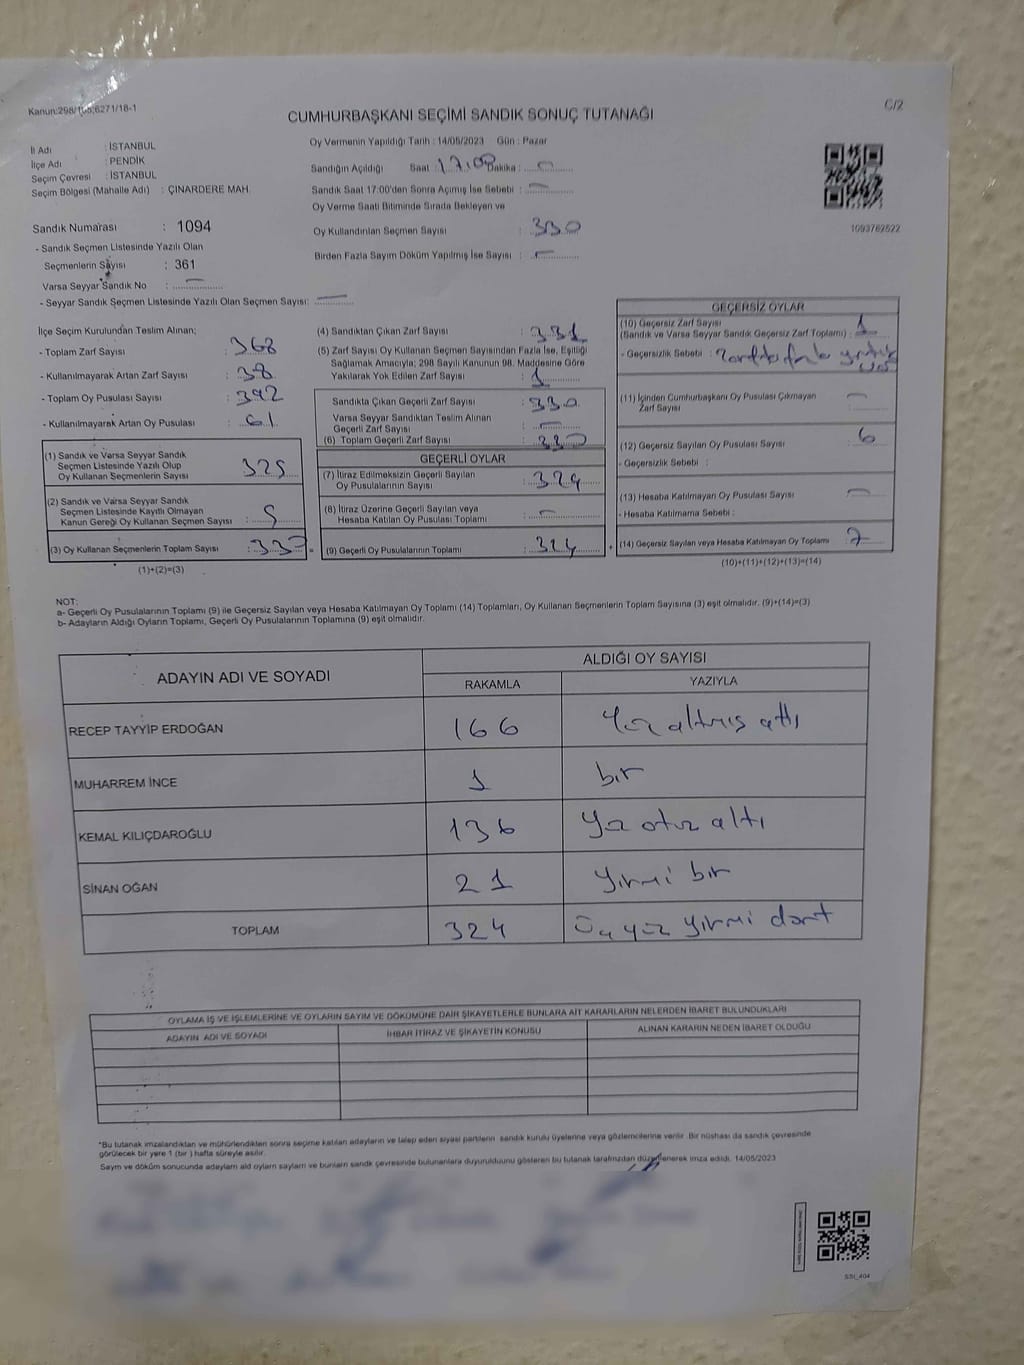 Kanun:298/105;6271/18-1
C/2
CUMHURBAŞKANI SEÇİMİ SANDIK SONUÇ TUTANAĞI
İl Adı : İSTANBUL
İlçe Adı : PENDİK
Seçim Çevresi : İSTANBUL
Seçim Bölgesi (Mahalle Adı) : ÇINARDERE MAH.
Oy Vermenin Yapıldığı Tarih : 14/05/2023 Gün : Pazar
Sandığın Açıldığı Saat : 17:00 Dakika :
Sandık Saat 17:00'den Sonra Açılmış İse Sebebi :
Oy Verme Saati Bitiminde Sırada Bekleyen ve
Oy Kullandırılan Seçmen Sayısı : 330
Birden Fazla Sayım Döküm Yapılmış İse Sayısı :
1093762522
Sandık Numarası : 1094
- Sandık Seçmen Listesinde Yazılı Olan
Seçmenlerin Sayısı : 361
Varsa Seyyar Sandık No :
- Seyyar Sandık Seçmen Listesinde Yazılı Olan Seçmen Sayısı:
İlçe Seçim Kurulundan Teslim Alınan;
- Toplam Zarf Sayısı : 368
- Kullanılmayarak Artan Zarf Sayısı : 38
- Toplam Oy Pusulası Sayısı : 392
- Kullanılmayarak Artan Oy Pusulası : 61
(1) Sandık ve Varsa Seyyar Sandık
Seçmen Listesinde Yazılı Olup
Oy Kullanan Seçmenlerin Sayısı : 325
(2) Sandık ve Varsa Seyyar Sandık
Seçmen Listesinde Kayıtlı Olmayan
Kanun Gereği Oy Kullanan Seçmen Sayısı :
(3) Oy Kullanan Seçmenlerin Toplam Sayısı :
(1)+(2)=(3)
(4) Sandıktan Çıkan Zarf Sayısı : 331
(5) Zarf Sayısı Oy Kullanan Seçmen Sayısından Fazla İse, Eşitliği
Sağlamak Amacıyla; 298 Sayılı Kanunun 98. Maddesine Göre
Yakılarak Yok Edilen Zarf Sayısı : 1
Sandıkta Çıkan Geçerli Zarf Sayısı : 330
Varsa Seyyar Sandıktan Teslim Alınan
Geçerli Zarf Sayısı :
(6) Toplam Geçerli Zarf Sayısı : 330
GEÇERLİ OYLAR
(7) İtiraz Edilmeksizin Geçerli Sayılan
Oy Pusulalarının Sayısı : 324
(8) İtiraz Üzerine Geçerli Sayılan veya
Hesaba Katılan Oy Pusulası Toplamı :
(9) Geçerli Oy Pusulalarının Toplamı : 324
GEÇERSİZ OYLAR
(10) Geçersiz Zarf Sayısı
(Sandık ve Varsa Seyyar Sandık Geçersiz Zarf Toplamı) : 1
- Geçersizlik Sebebi :
(11) İçinden Cumhurbaşkanı Oy Pusulası Çıkmayan
Zarf Sayısı :
(12) Geçersiz Sayılan Oy Pusulası Sayısı : 6
- Geçersizlik Sebebi :
(13) Hesaba Katılmayan Oy Pusulası Sayısı :
- Hesaba Katılmama Sebebi :
(14) Geçersiz Sayılan veya Hesaba Katılmayan Oy Toplamı : 7
(10)+(11)+(12)+(13)=(14)
NOT:
a- Geçerli Oy Pusulalarının Toplamı (9) ile Geçersiz Sayılan veya Hesaba Katılmayan Oy Toplamı (14) Toplamları, Oy Kullanan Seçmenlerin Toplam Sayısına (3) eşit olmalıdır. (9)+(14)=(3)
b- Adayların Aldığı Oyların Toplamı, Geçerli Oy Pusulalarının Toplamına (9) eşit olmalıdır.
ADAYIN ADI VE SOYADI
ALDIĞI OY SAYISI
RAKAMLA YAZIYLA
RECEP TAYYİP ERDOĞAN 166 Yüz altmış altı
MUHARREM İNCE 1 bir
KEMAL KILIÇDAROĞLU 136 Yüz otuz altı
SİNAN OĞAN 21 Yirmi bir
TOPLAM 324 Üç yüz yirmi dört
OYLAMA İŞ VE İŞLEMLERİNE VE OYLARIN SAYIM VE DÖKÜMÜNE DAİR ŞİKAYETLERLE BUNLARA AİT KARARLARIN NELERDEN İBARET BULUNDUKLARI
ADAYIN ADI VE SOYADI İHBAR İTİRAZ VE ŞİKAYETİN KONUSU ALINAN KARARIN NEDEN İBARET OLDUĞU
*Bu tutanak imzalandıktan ve mühürlendikten sonra seçime katılan adayların ve talep eden siyasi partilerin sandık kurulu üyelerine veya gözlemcilerine verilir. Bir nüshası da sandık çevresinde
görülecek bir yere 1 (bir ) hafta süreyle asılır.
Sayım ve döküm sonucunda adayların aldığı oyların sayıları ve bunların sandık çevresinde bulunanlara duyurulduğunu gösteren bu tutanak tarafımızdan düzenlenerek imza edildi. 14/05/2023